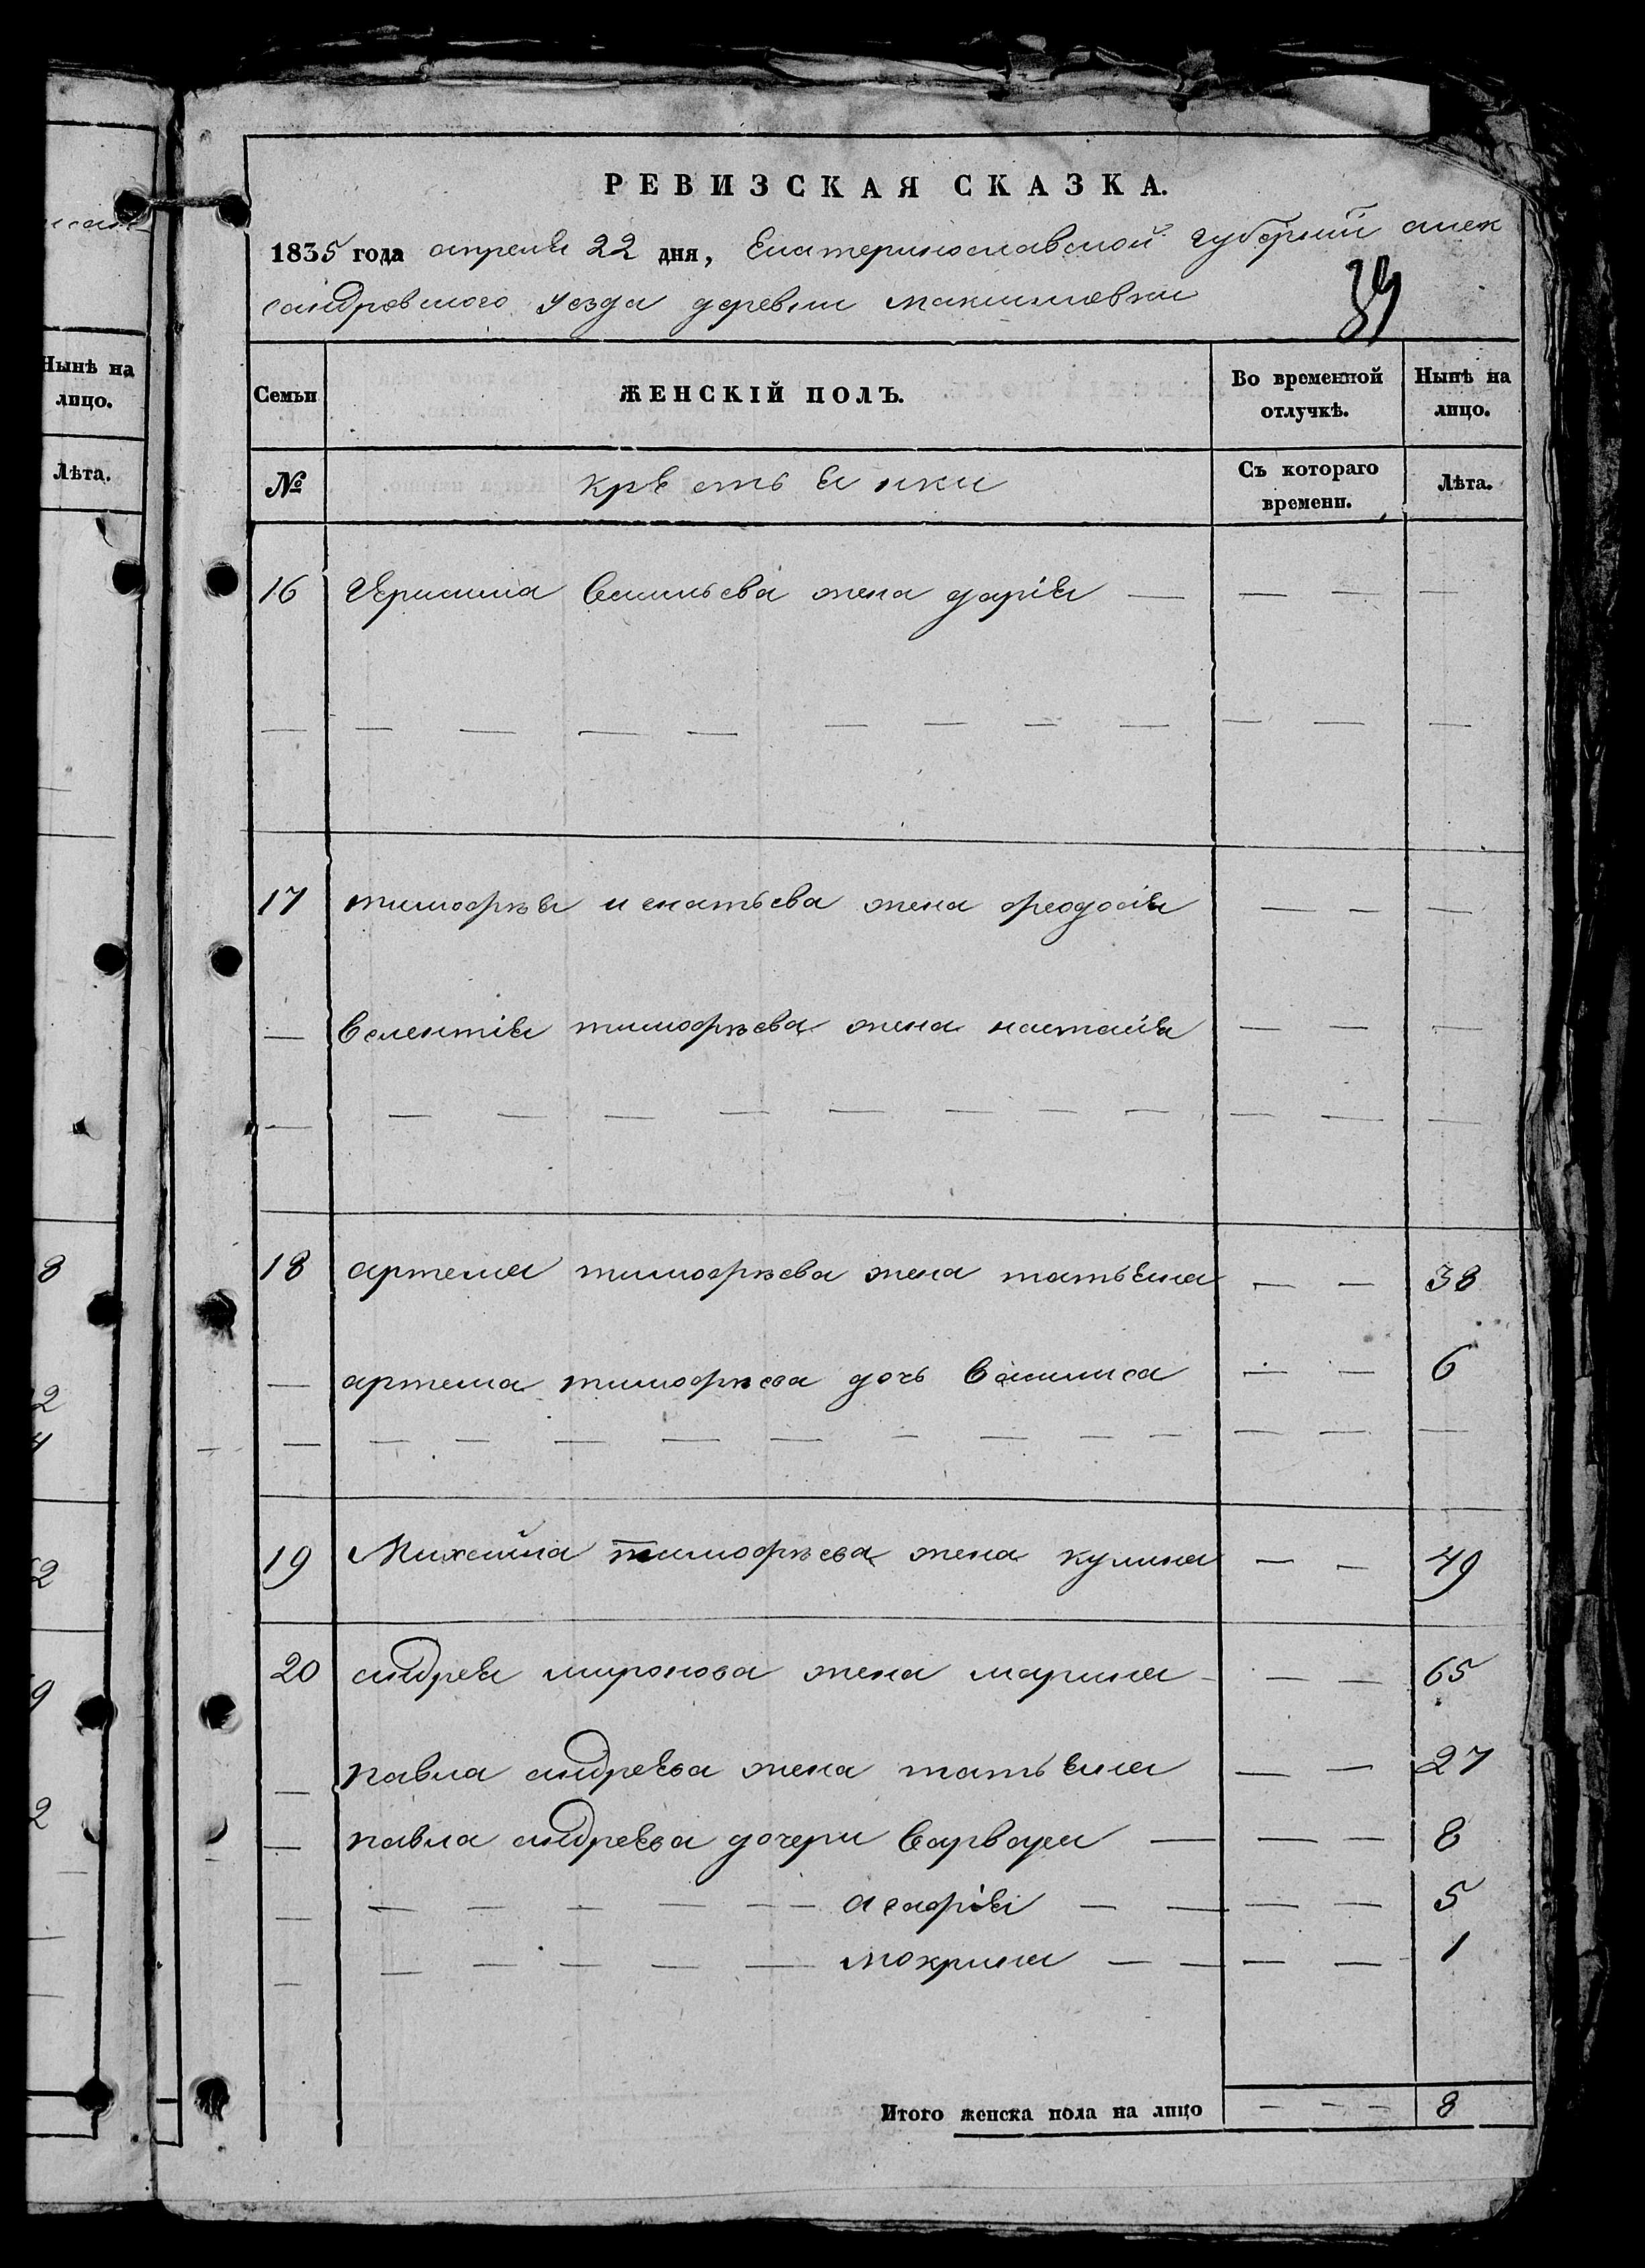 РЕВИЗСКАЯ СКАЗКА.
1835 года апреля 22 дня, Екатеринославской губернии алек
сандровского уезда деревни Максимовки
39
Семьи
ЖЕНСКІЙ ПОЛЪ.
Во временной отлучкѣ.
Нынѣ на лицо.
№
крестьянки
Съ котораго времени.
Лѣта.
16 Герасима Васильева жена дарія — — — —
17 тимофѣя игнатьева жена феодосія — — —
— Велентія тимофѣева жена настасія — — —
18 артема тимофѣева жена татьяна — — 38
— артема тимофѣева дочь Василиса — — 6
19 Михайла тимофѣева жена кулина — — 49
20 андрея миронова жена марина — — 65
— павла андреева жена татьяна — — 27
— павла андреева дочери Варвара — — — 8
— агафія — — — — 5
— мокрина — — — — 1
Итого женска пола на лицо — — — 8
Нынѣ на
лицо.
Лѣта.
8
2
4
2
9
2